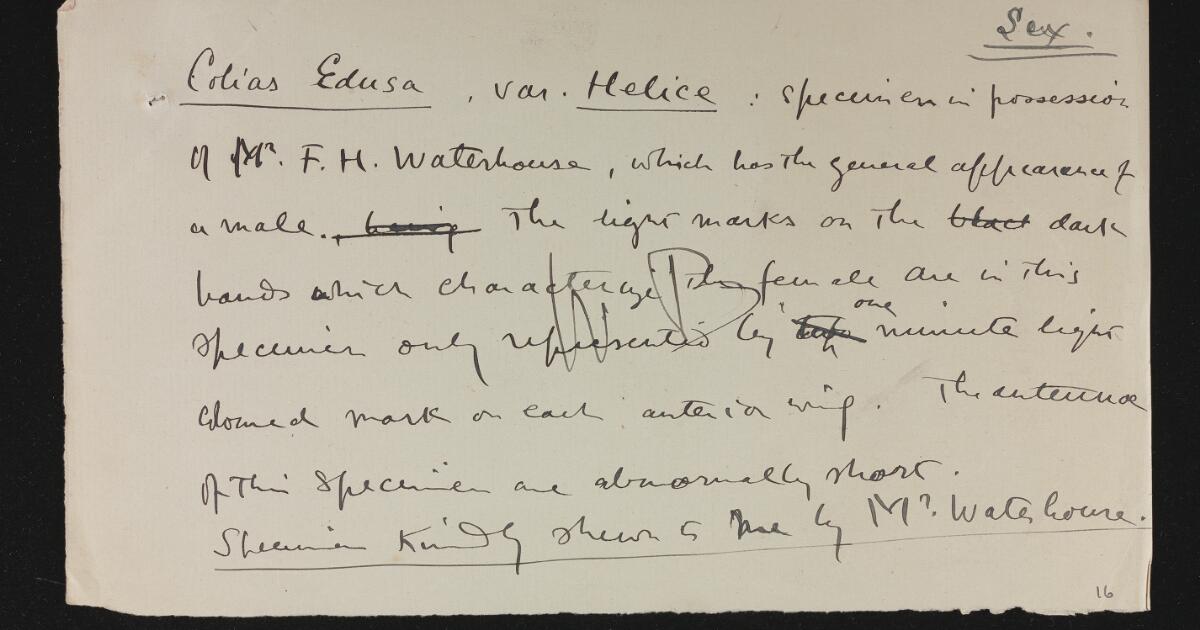 Sex.
Colias Edusa, var. Helice : specimen in possession
of Mr. F. H. Waterhouse, which has the general appearance of
a male. being The light marks on the black dark
bands which characterize the female are in this
specimen only represented by one minute light
coloured mark on each anterior wing. The antennae
of this specimen are abnormally short.
Specimen kindly shewn to me by Mr. Waterhouse.
16